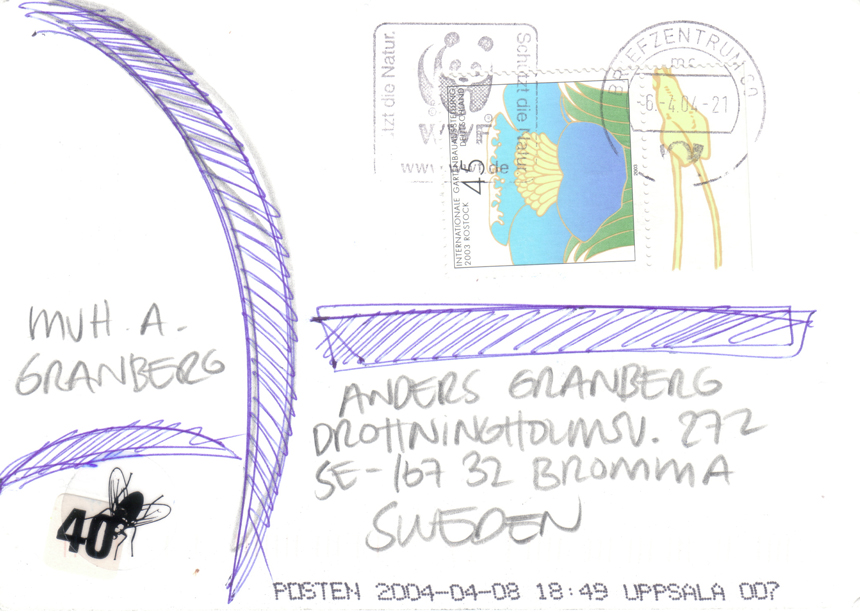 ...tzt die Natur.
Schützt die Natur.
WWF
www.wwf.de
BRIEFZENTRUM 50
mc
-6.-4.04-21
INTERNATIONALE GARTENBAUAUSSTELLUNG
2003 ROSTOCK
DEUTSCHLAND
45
2003
MVH. A.
GRANBERG
ANDERS GRANBERG
DROTTNINGHOLMSV. 272
SE-167 32 BROMMA
SWEDEN
40
POSTEN 2004-04-08 18:49 UPPSALA 007